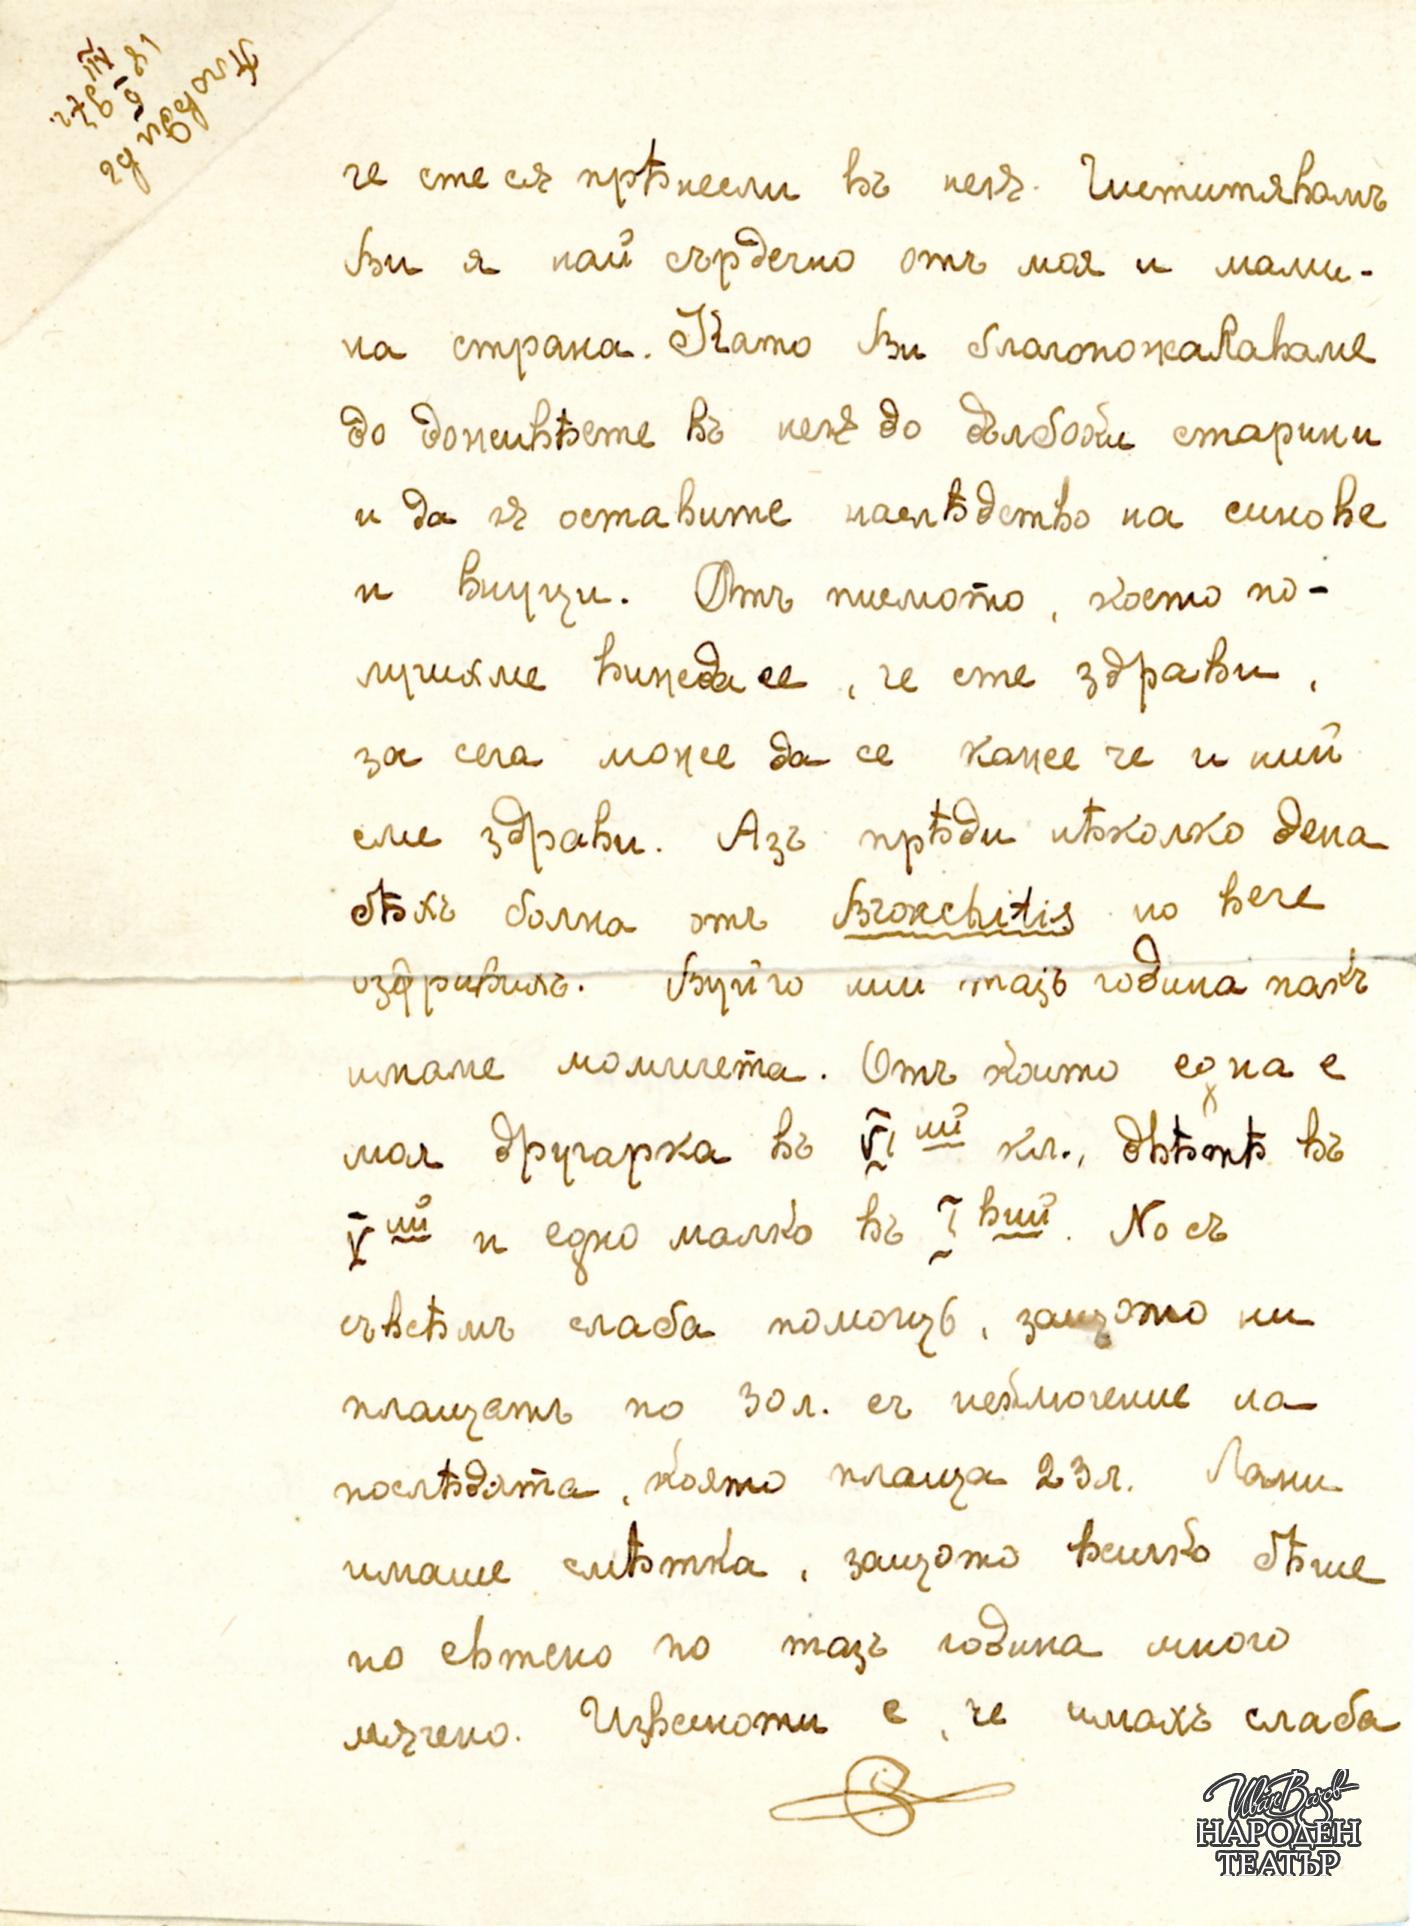 че сте сѫ прѣнесли въ неѭ. Чиститявамъ
Ви я най сърдечно отъ моя и мами-
на страна. Като Ви благопожалаваме
до доживѣете въ неѭ до дълбоки старини
и да ѭ оставите наслѣдство на синове
и внуци. Отъ писмото, което по-
лучихме виждасе, че сте здрави,
за сега може да се каже че и ний
сме здрави. Азъ прѣди нѣколко дена
бѣхъ болна отъ Bronchitis но вече
оздравихъ. Вуйчо ми тазъ година пакъ
имаме момичета. Отъ които една е
моя другарка въ VI ий кл., двѣтѣ въ
V ий и едно малко въ I вий. No съ
съвсѣмъ слаба помощь, защото ни
плащатъ по 30 л. съ исключение на
послѣдята, която плаща 23 л. Лани
имаше смѣтка, защото всичко бѣше
по евтено но тазъ година много
мѫчено. Извесноти е, че имахъ слаба
Иван Вазов
НАРОДЕН
ТЕАТЪР